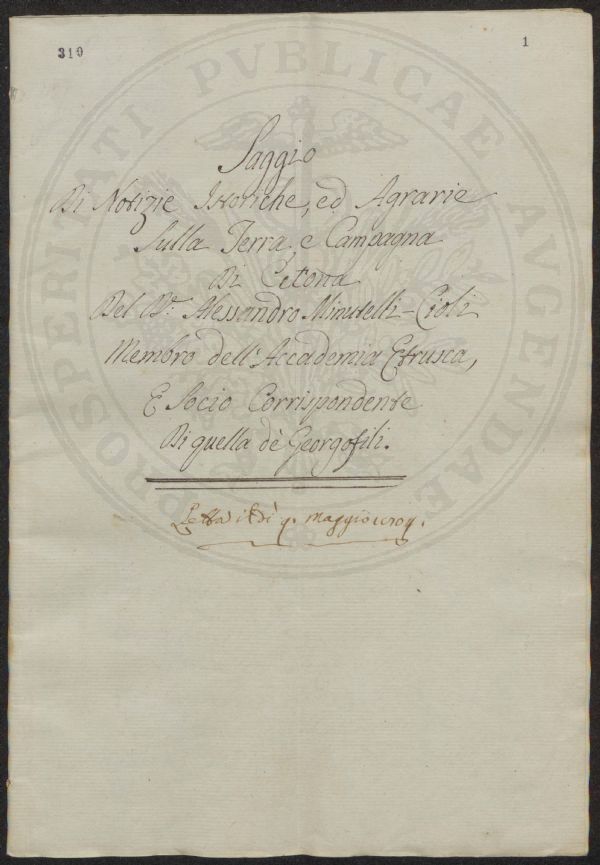 310
1
PROSPERITATI PVBLICAE AVGENDAE
Saggio
Di Notizie Istoriche, ed Agrarie
Sulla Terra e Campagna
Di Cetona
Del D.r Alessandro Minutelli-Cioli
Membro dell'Accademia Etrusca,
E Socio Corrispondente
Di quella dè Georgofili.
Letta il dì 9. Maggio